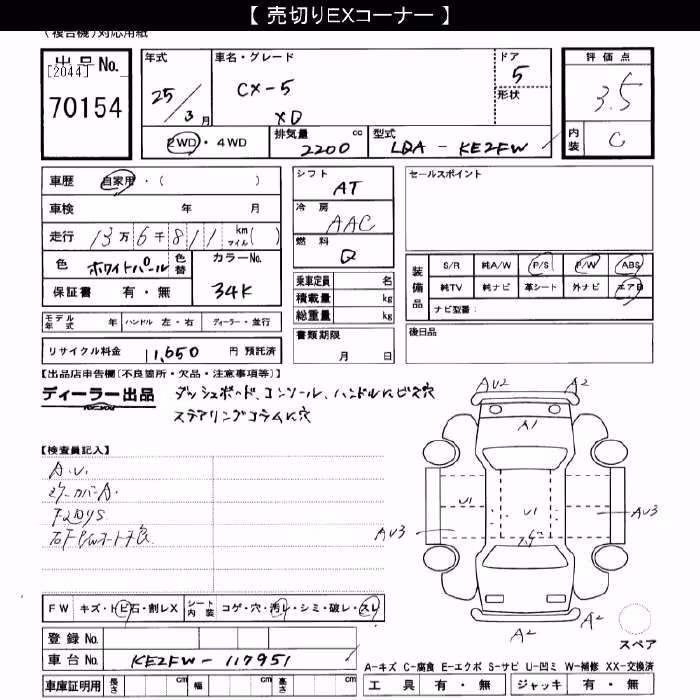 【 売切りEXコーナー 】
(複合機)対応用紙
出品 No.
[2044]
70154
年式
25/3月
車名・グレード
CX-5
XD
ドア
5
形状
評価点
3.5
内装
C
2WD・4WD
排気量 cc
2200
型式
LDA-KE2FW
車歴 自家用・( )
車検 年 月
走行 13万6千811 km マイル( )
色 ホワイトパール
色替
カラーNo.
34K
保証書 有・無
モデル年式 年 ハンドル 左・右 ディーラー・並行
リサイクル料金 11,650 円 預託済
シフト
AT
冷房
AAC
燃料
D
乗車定員 名
積載量 kg
総重量 kg
書類期限
月 日
セールスポイント
装備品
S/R 純A/W P/S P/W ABS
純TV 純ナビ 革シート 外ナビ エアB
ナビ型番:
後日品
【出品店申告欄(不良箇所・欠品・注意事項等)】
ディーラー出品
ダッシュボード、コンソール、ハンドルにビス穴
ステアリングコラムに穴
【検査員記入】
A.U.
AU2
A2
A1
U1
U1
AU3
AU3
A2
A2
スペア
FW キズ・トビ石・割レX
シート内装 コゲ・穴・汚レ・シミ・破レ・スレ
登録 No.
車台 No. KE2FW-117951
車庫証明用 長さ cm 幅 cm 高さ cm
A-キズ C-腐食 E-エクボ S-サビ U-凹ミ W-補修 XX-交換済
工具 有・無 ジャッキ 有・無